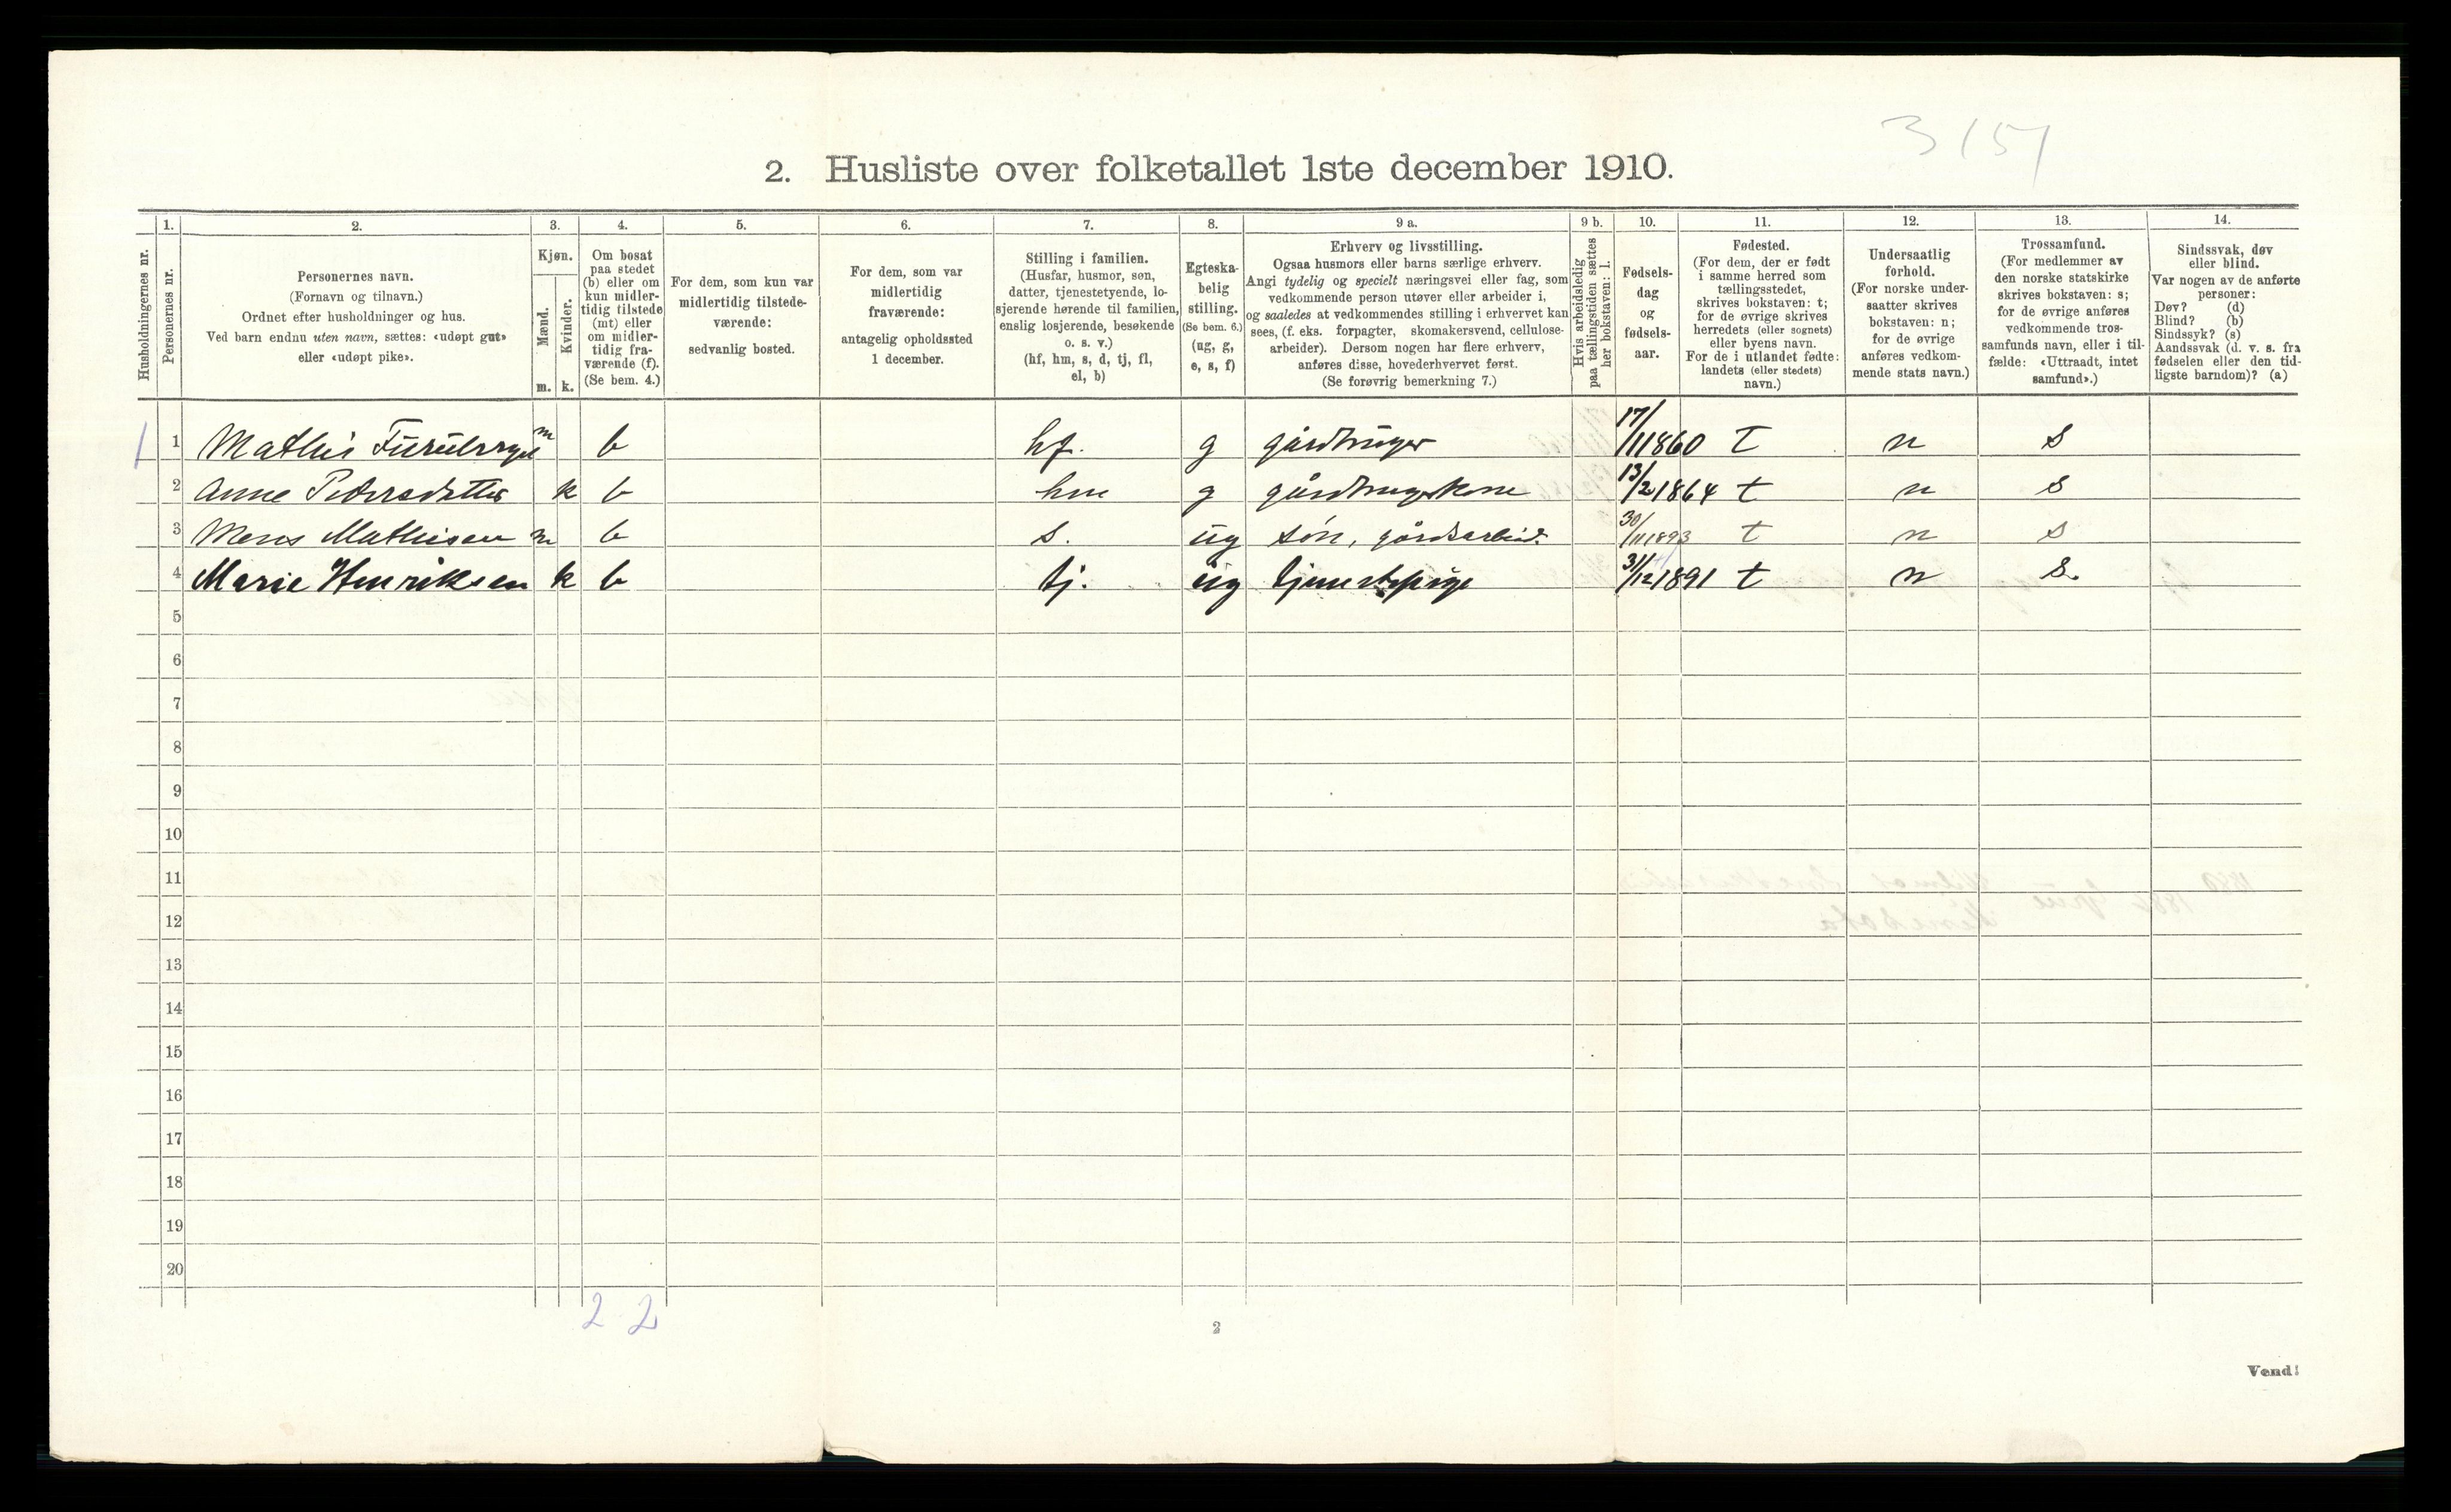 3 151
2. Husliste over folketallet 1ste december 1910.
1. 2. 3. 4. 5. 6. 7. 8. 9 a. 9 b. 10. 11. 12. 13. 14.
Husholdningernes nr.
Personernes nr.
Personernes navn.
(Fornavn og tilnavn.)
Ordnet efter husholdninger og hus.
Ved barn endnu uten navn, sættes: «udøpt gut»
eller «udøpt pike».
Kjøn.
Mænd.
Kvinder.
m. k.
Om bosat
paa stedet
(b) eller om
kun midler-
tidig tilstede
(mt) eller
om midler-
tidig fra-
værende (f).
(Se bem. 4.)
For dem, som kun var
midlertidig tilstede-
værende:
sedvanlig bosted.
For dem, som var
midlertidig
fraværende:
antagelig opholdssted
1 december.
Stilling i familien.
(Husfar, husmor, søn,
datter, tjenestetyende, lo-
sjerende hørende til familien,
enslig losjerende, besøkende
o. s. v.)
(hf, hm, s, d, tj, fl,
el, b)
Egteska-
belig
stilling.
(Se bem. 6.)
(ug, g,
e, s, f)
Erhverv og livsstilling.
Ogsaa husmors eller barns særlige erhverv.
Angi tydelig og specielt næringsvei eller fag, som
vedkommende person utøver eller arbeider i,
og saaledes at vedkommendes stilling i erhvervet kan
sees, (f. eks. forpagter, skomakersvend, cellulose-
arbeider). Dersom nogen har flere erhverv,
anføres disse, hovederhvervet først.
(Se forøvrig bemerkning 7.)
Hvis arbeidsledig
paa tællingstiden sættes
her bokstaven: l.
Fødsels-
dag
og
fødsels-
aar.
Fødested.
(For dem, der er født
i samme herred som
tællingsstedet,
skrives bokstaven: t;
for de øvrige skrives
herredets (eller sognets)
eller byens navn.
For de i utlandet fødte:
landets (eller stedets)
navn.)
Undersaatlig
forhold.
(For norske under-
saatter skrives
bokstaven: n;
for de øvrige
anføres vedkom-
mende stats navn.)
Trossamfund.
(For medlemmer av
den norske statskirke
skrives bokstaven: s;
for de øvrige anføres
vedkommende tros-
samfunds navn, eller i til-
fælde: «Uttraadt, intet
samfund».)
Sindssvak, døv
eller blind.
Var nogen av de anførte
personer:
Døv? (d)
Blind? (b)
Sindssyk? (s)
Aandssvak (d. v. s. fra
fødselen eller den tid-
ligste barndom)? (a)
1 1 Mathis m b hf. g gårdbruger 17/11 1860 T n s
2 Anne Pedersdatter k b hm g gårdbrugerkone 13/2 1864 t n s
3 Mons Mathisen m b s. ug søn, gårdsarbeid. 30/11 1893 t n s
4 Marie Henriksen k b tj. ug tjenestepige 31/12 1891 t n s.
5
6
7
8
9
10
11
12
13
14
15
16
17
18
19
20
2 2
2
Vend!